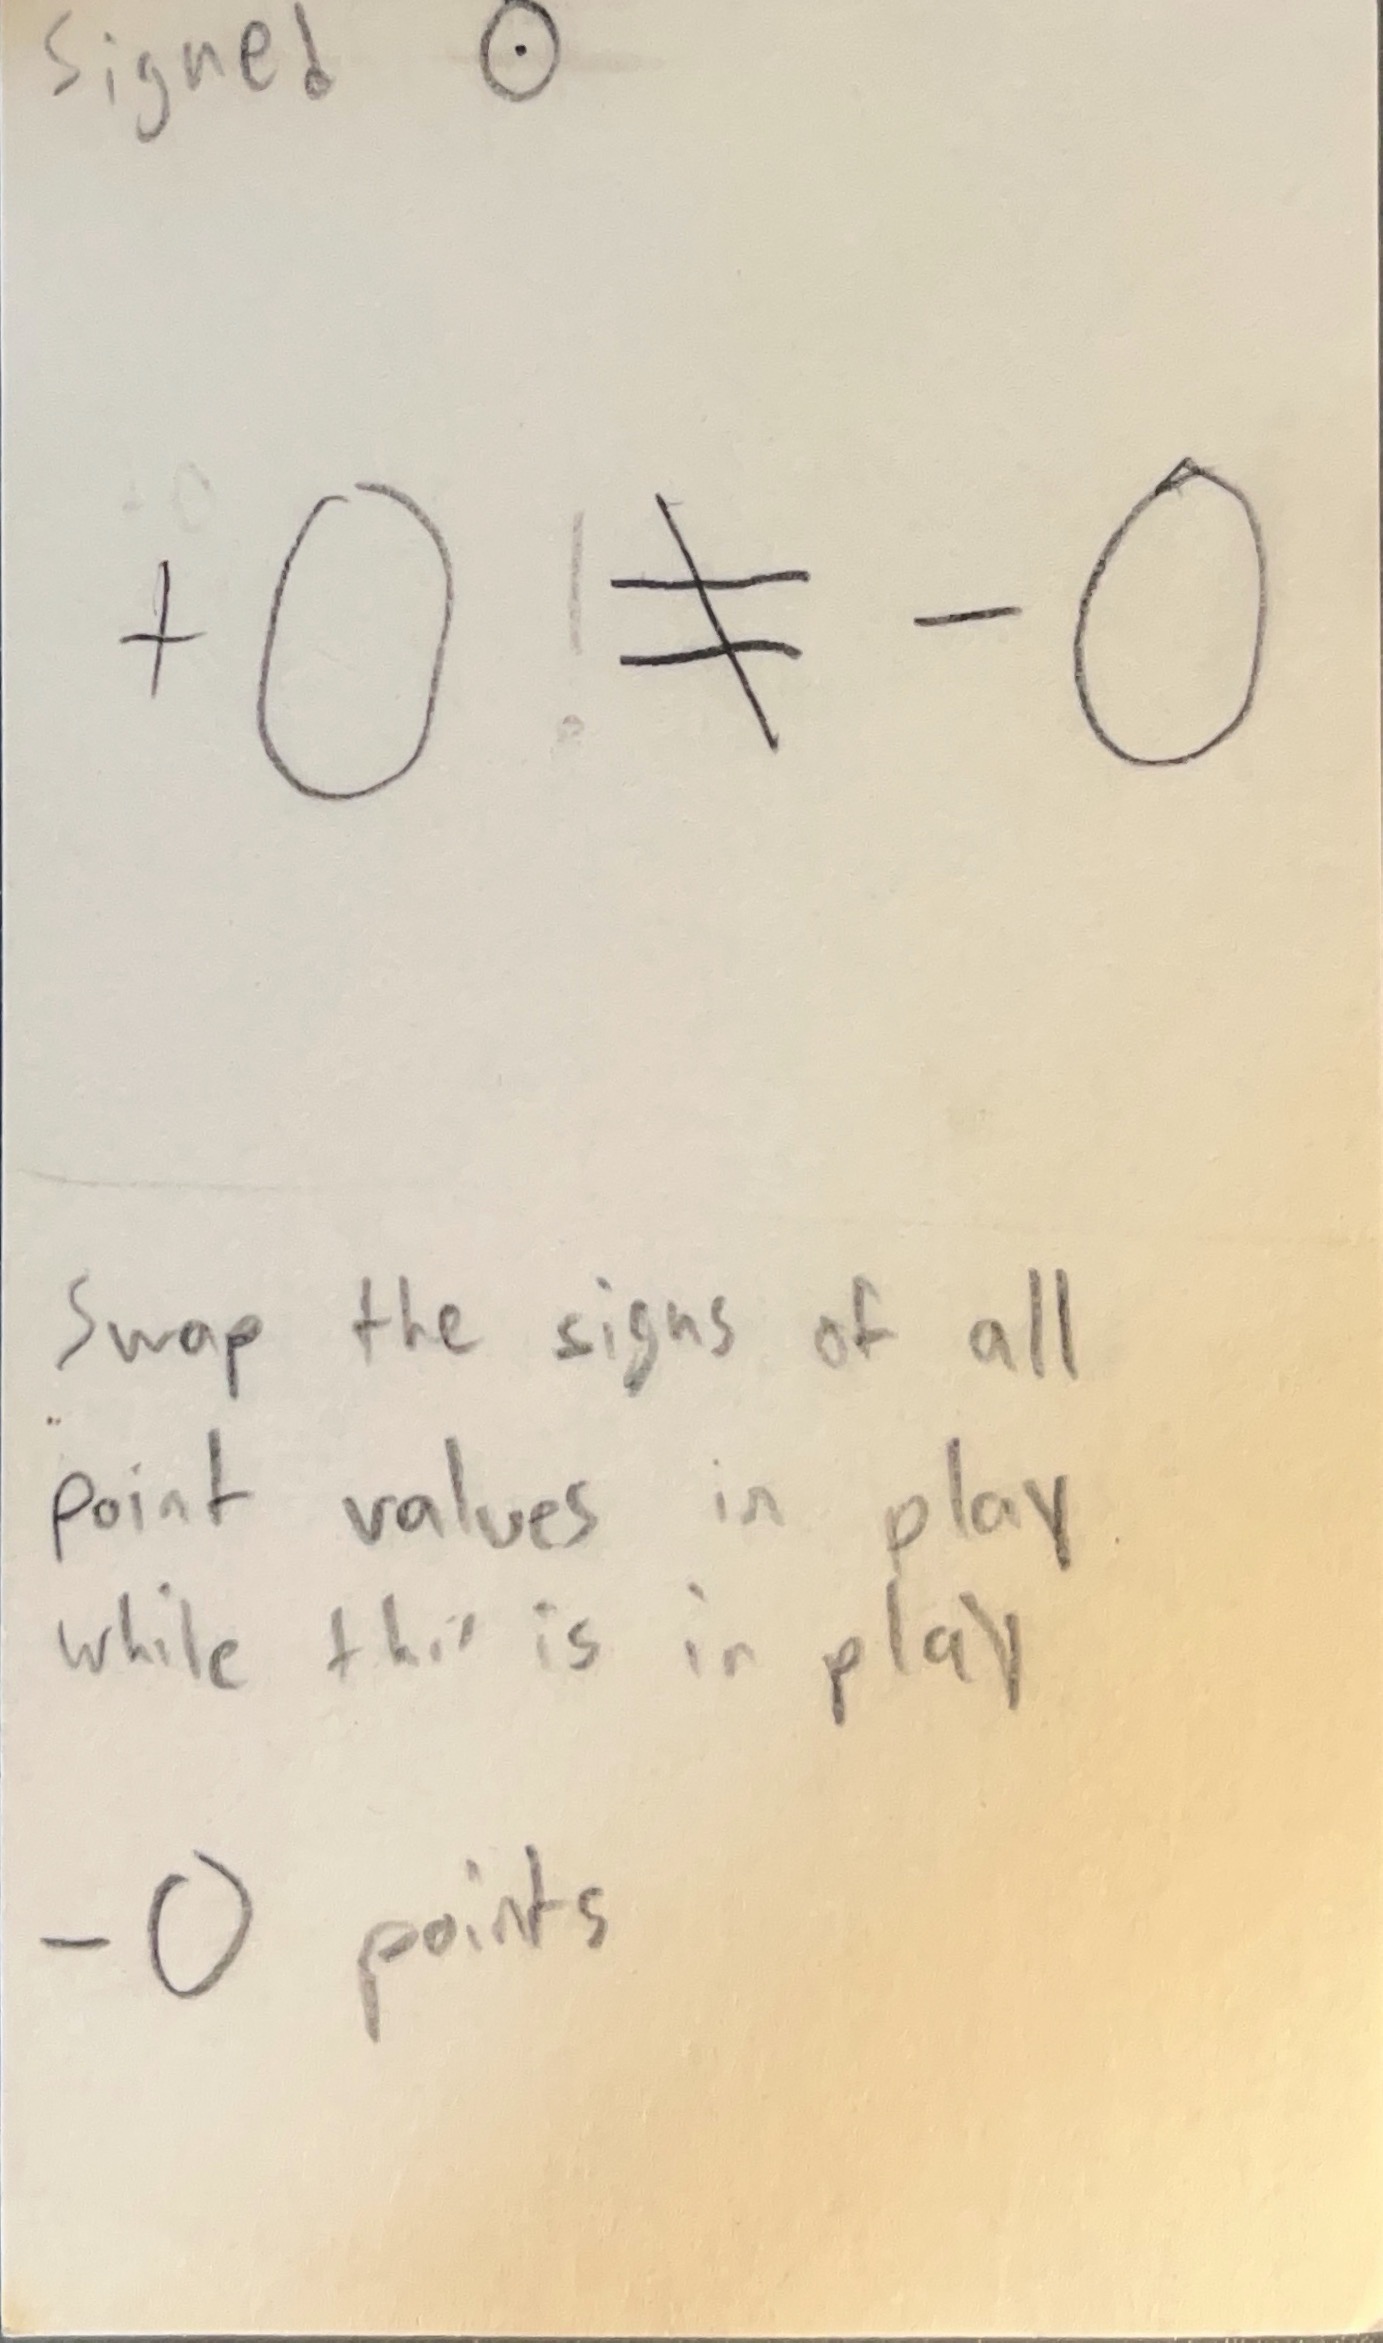 Signed ⊙
+0 ≠ -0
Swap the signs of all
point values in play
while this is in play
-0 points